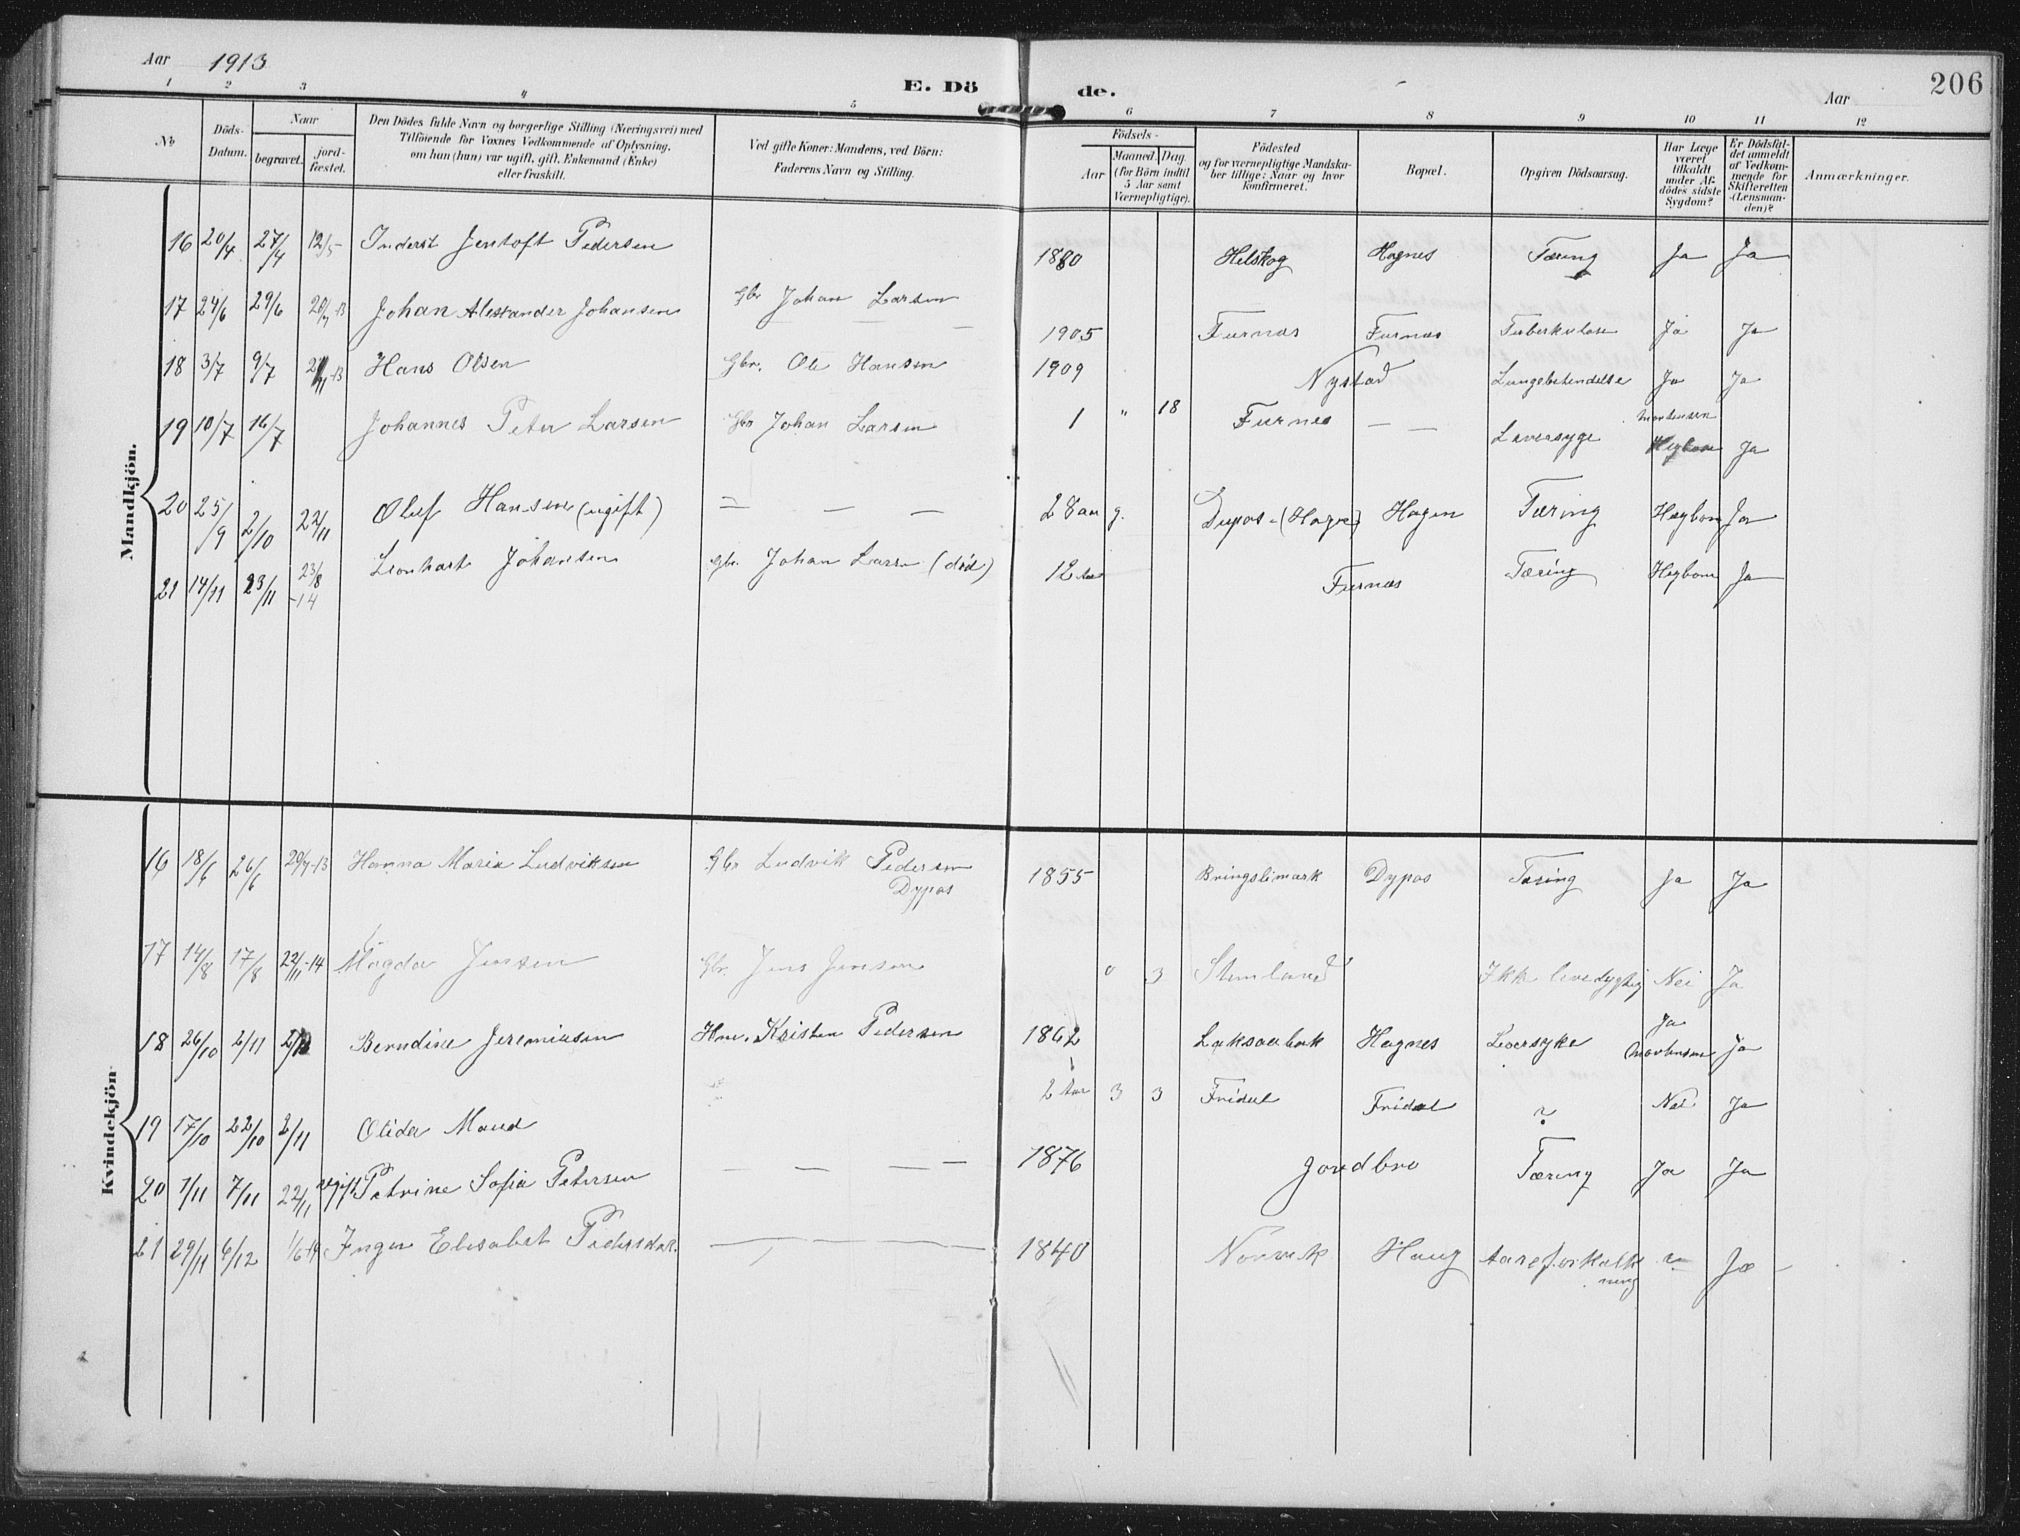 Aar 1913
E. Döde.
Aar
206
1 2 3 4 5 6 7 8 9 10 11 12
No
Döds-Datum.
Naar
begravet.
jordfæstet.
Den Dödes fulde Navn og borgerlige Stilling (Næringsvei) med
Tilföiende for Voxnes Vedkommende af Oplysning,
om han (hun) var ugift, gift, Enkemand (Enke)
eller fraskilt.
Ved gifte Koner: Mandens, ved Börn:
Faderens Navn og Stilling.
Födsels-
Aar
Maaned. Dag.
(for Börn indtil
5 Aar samt
Værnepligtige).
Födested
og for værnepligtige Mandska-
ber tillige: Naar og hvor
konfirmeret.
Bopæl.
Opgiven Dödsaarsag.
Har Læge
været
tilkaldt
under Af-
dödes sidste
Sygdom?
Er Dödsfal-
det anmeldt
af Vedkom-
mende for
Skifteretten
(Lensman-
den)?
Anmærkninger.
Mandkjön.
16 20/4 27/4 12/5 Inderst Jentoft Pedersen 1880 Helskog Hognes Tæring Ja Ja
17 24/6 29/6 20/7-13 Johan Alexander Johansen Gbr Johan Larsen 1905 Furnæs Furnæs Tuberkulose Ja Ja
18 3/7 9/7 Hans Olsen Gbr. Ole Hansen 1909 Nystad Lungebetændelse Ja Ja
19 10/7 16/7 Johannes Peter Larsen Gbr Johan Larsen 1 " 18 Furnes — — Leversyge Mortensen Høgbom Ja
20 25/9 2/10 22/11 Oluf Hansen (ugift) — — — 28 aar g. Dypos (Hagen) Hagen Tæring Høgbom Ja
21 14/11 23/11 23/8-14 Leonhart Johansen Gbr. Johan Larsen (död) 12 aar Furnæs Tæring Høgbom Ja
Kvindekjön
16 18/6 26/6 20/7-13 Hanna Maria Ludviksen Gbr Ludvik Pedersen Dypos 1855 Bringslimark Dypos Tæring Ja Ja
17 14/8 17/8 22/11-14 Magda Jensen Gbr. Jens Jensen 0 3 Stenland Ikke levedygtig Nei Ja
18 26/10 2/11 Berndine Jeremiasen Hm. Kristen Pedersen 1862 Laksaabak Hognes Leversyke Ja Mortensen Ja
19 17/10 22/10 2/11 Olida Maud 2 Aar 3 3 Fridal Fridal ? Nei Ja
20 1/11 7/11 22/11 ugift Petrine Sofie Petersen — — — — 1876 Jordbro Tæring Ja Ja
21 29/11 6/12 1/6-14 Inger Elisabet Pedersdat. — 1840 Norvik Haug Aareforkalkning ? Ja